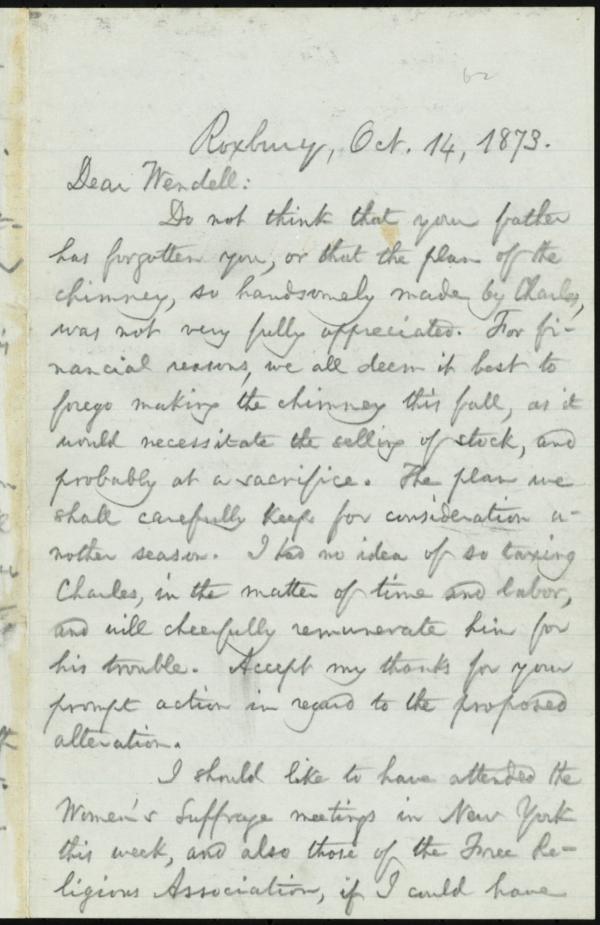 62
Roxbury, Oct. 14, 1873.
Dear Wendell:
Do not think that your father
has forgotten you, or that the plan of the
chimney, so handsomely made by Charles,
was not very fully appreciated. For fi-
nancial reasons, we all deem it best to
forego making the chimney this fall, as it
would necessitate the selling of stock, and
probably at a sacrifice. The plan we
shall carefully keep for consideration a-
nother season. I had no idea of so taxing
Charles, in the matter of time and labor,
and will cheerfully remunerate him for
his trouble. Accept my thanks for your
prompt action in regard to the proposed
alteration.
I should like to have attended the
Women's Suffrage meetings in New York
this week, and also those of the Free Re-
ligious Association, if I could have